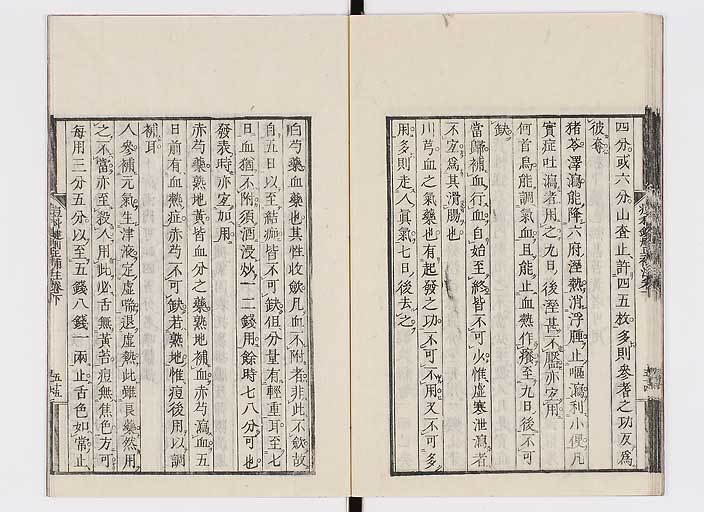 四分或六分山査止許四五枚多則參耆之功反爲
彼奪
猪苓澤瀉能降六府溼熱消浮腫止嘔瀉利小便凡
實症吐瀉者用之九日後溼甚不靨亦宜用
何首烏能調氣血且能止血熱作癢至九日後不可
缺
當歸補血行血自始至終皆不可少惟虛寒泄瀉者
不宜爲其滑腸也
川芎血之氣藥也有起發之功不可不用又不可多
用多則走人眞氣七日後去之
白芍藥血藥也其性收斂凡血不附者非此不斂故
自五日以至結痂皆不可缺但分量有輕重耳至七
日血猶不附須酒浸炒一二錢用餘時七八分可也
發表時亦宜加用
赤芍藥熟地黃皆血分之藥熟地補血赤芍瀉血五
日前有血熱症赤芍不可缺若熟地惟痘後用以調
補耳
人參補元氣生津液定虛喘退虛熱此雖良藥然用
之不當亦至殺人用此必舌無黃苔痘無焦色方可
每用三分五分以至五錢八錢一兩止舌色如常止
痘科鍵刪正補註卷下
五十五